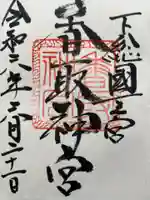 下総國一之宮
香取神宮
令和六年二月二十一日